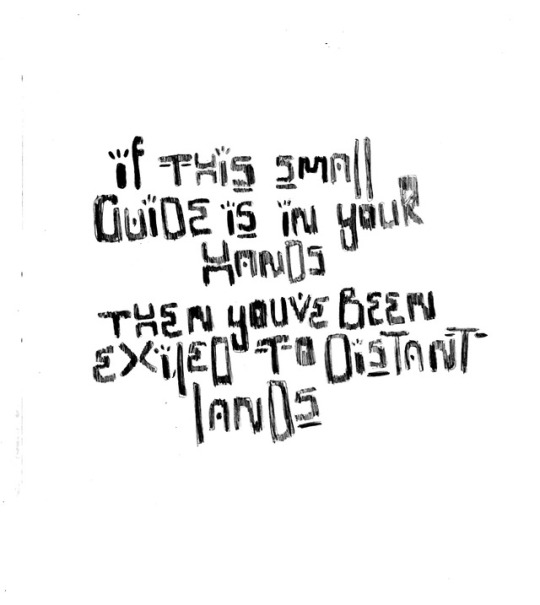 if THiS SMAll
GUiDE iS iN yOUR
HANDS
THEN yOUVE BEEN
EXilED TO DiSTANT
lANDS